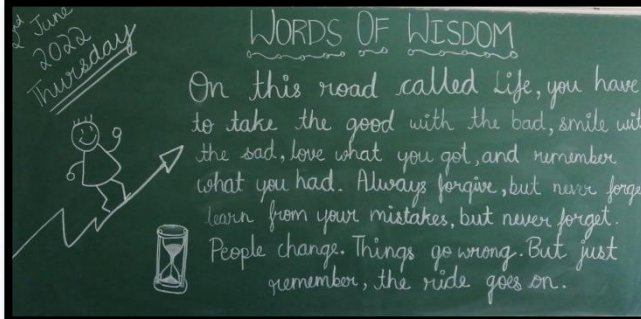 2nd June
2022
Thursday
WORDS OF WISDOM
On this road called Life, you have
to take the good with the bad, smile wit
the sad, love what you got, and remember
what you had. Always forgive, but never forge
learn from your mistakes, but never forget.
People change. Things go wrong. But just
remember, the ride goes on.